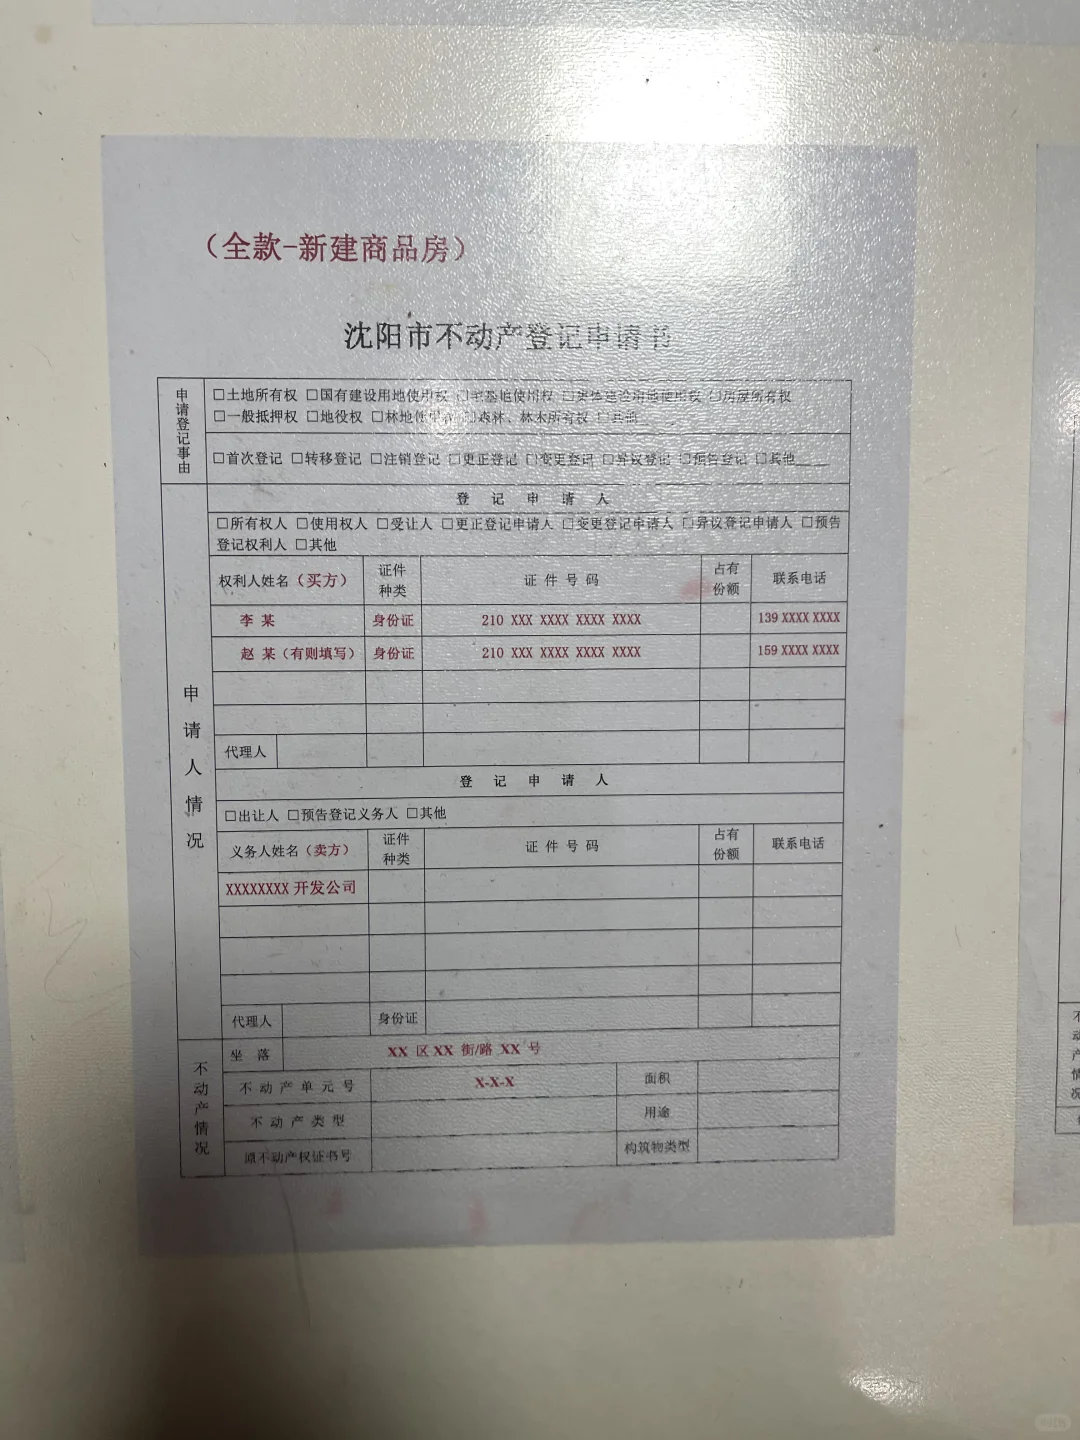 （全款-新建商品房）
沈阳市不动产登记申请书
申请登记事由
□土地所有权 □国有建设用地使用权 □宅基地使用权 □集体建设用地使用权 □房屋所有权
□一般抵押权 □地役权 □林地使用权 □森林、林木所有权 □其他
□首次登记 □转移登记 □注销登记 □更正登记 □变更登记 □异议登记 □预告登记 □其他____
申请人情况
登 记 申 请 人
□所有权人 □使用权人 □受让人 □更正登记申请人 □变更登记申请人 □异议登记申请人 □预告
登记权利人 □其他
权利人姓名（买方） 证件种类 证 件 号 码 占有份额 联系电话
李 某 身份证 210 XXX XXXX XXXX XXXX 139 XXXX XXXX
赵 某（有则填写） 身份证 210 XXX XXXX XXXX XXXX 159 XXXX XXXX
代理人
登 记 申 请 人
□出让人 □预告登记义务人 □其他
义务人姓名（卖方） 证件种类 证 件 号 码 占有份额 联系电话
XXXXXXXX 开发公司
代理人 身份证
不动产情况
坐 落 XX 区 XX 街/路 XX 号
不 动 产 单 元 号 X-X-X 面积
不 动 产 类 型 用途
原不动产权证书号 构筑物类型